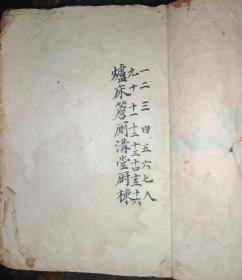 一二三四五六七八
九十十一十二十三十四十五十六
爐床簷廁溝堂厨棟